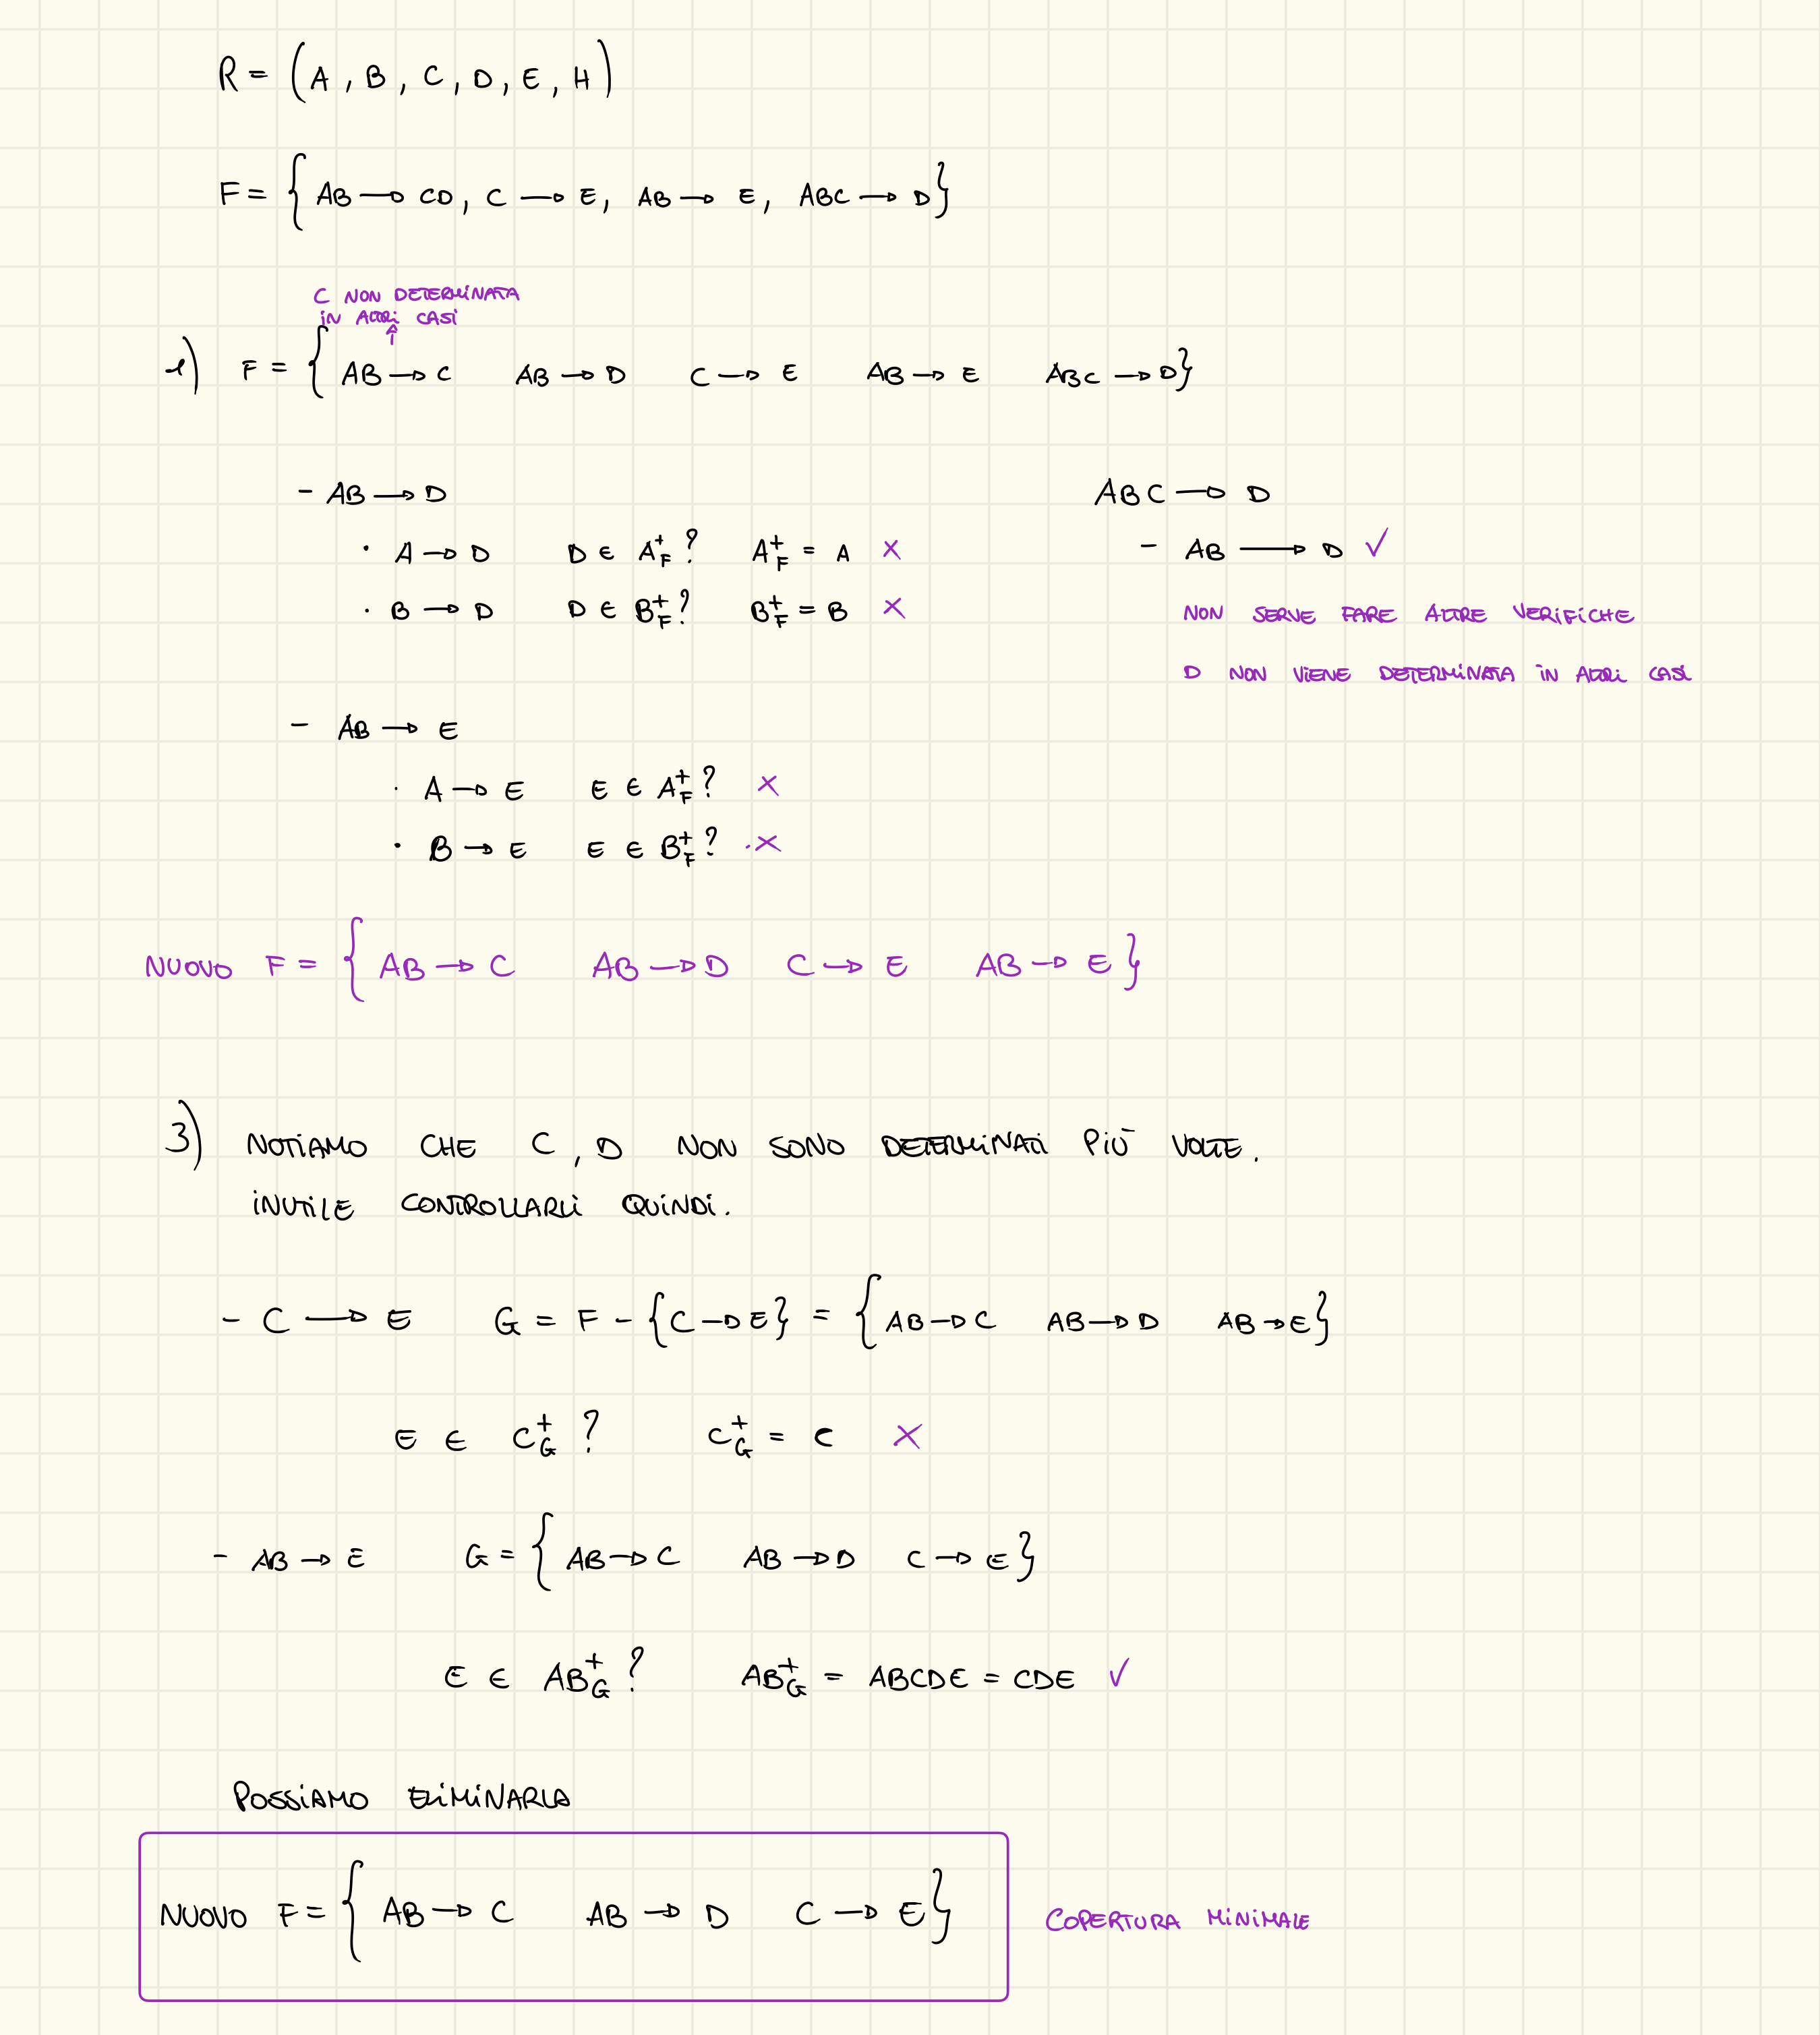 R = (A, B, C, D, E, H)
F = { AB → CD, C → E, AB → E, ABC → D }
C NON DETERMINATA
IN ALTRI CASI
↑
1) F = { AB → C AB → D C → E AB → E ABC → D }
- AB → D
· A → D D ∈ A⁺_F ? A⁺_F = A ✗
· B → D D ∈ B⁺_F ? B⁺_F = B ✗
ABC → D
- AB → D ✓
NON SERVE FARE ALTRE VERIFICHE
D NON VIENE DETERMINATA IN ALTRI CASI
- AB → E
· A → E E ∈ A⁺_F ? ✗
· B → E E ∈ B⁺_F ? ✗
NUOVO F = { AB → C AB → D C → E AB → E }
3) NOTIAMO CHE C, D NON SONO DETERMINATI PIÙ VOLTE.
INUTILE CONTROLLARLI QUINDI.
- C → E G = F - {C → E} = { AB → C AB → D AB → E }
E ∈ C⁺_G ? C⁺_G = C ✗
- AB → E G = { AB → C AB → D C → E }
E ∈ AB⁺_G ? AB⁺_G = ABCDE = CDE ✓
POSSIAMO ELIMINARLA
NUOVO F = { AB → C AB → D C → E }
COPERTURA MINIMALE